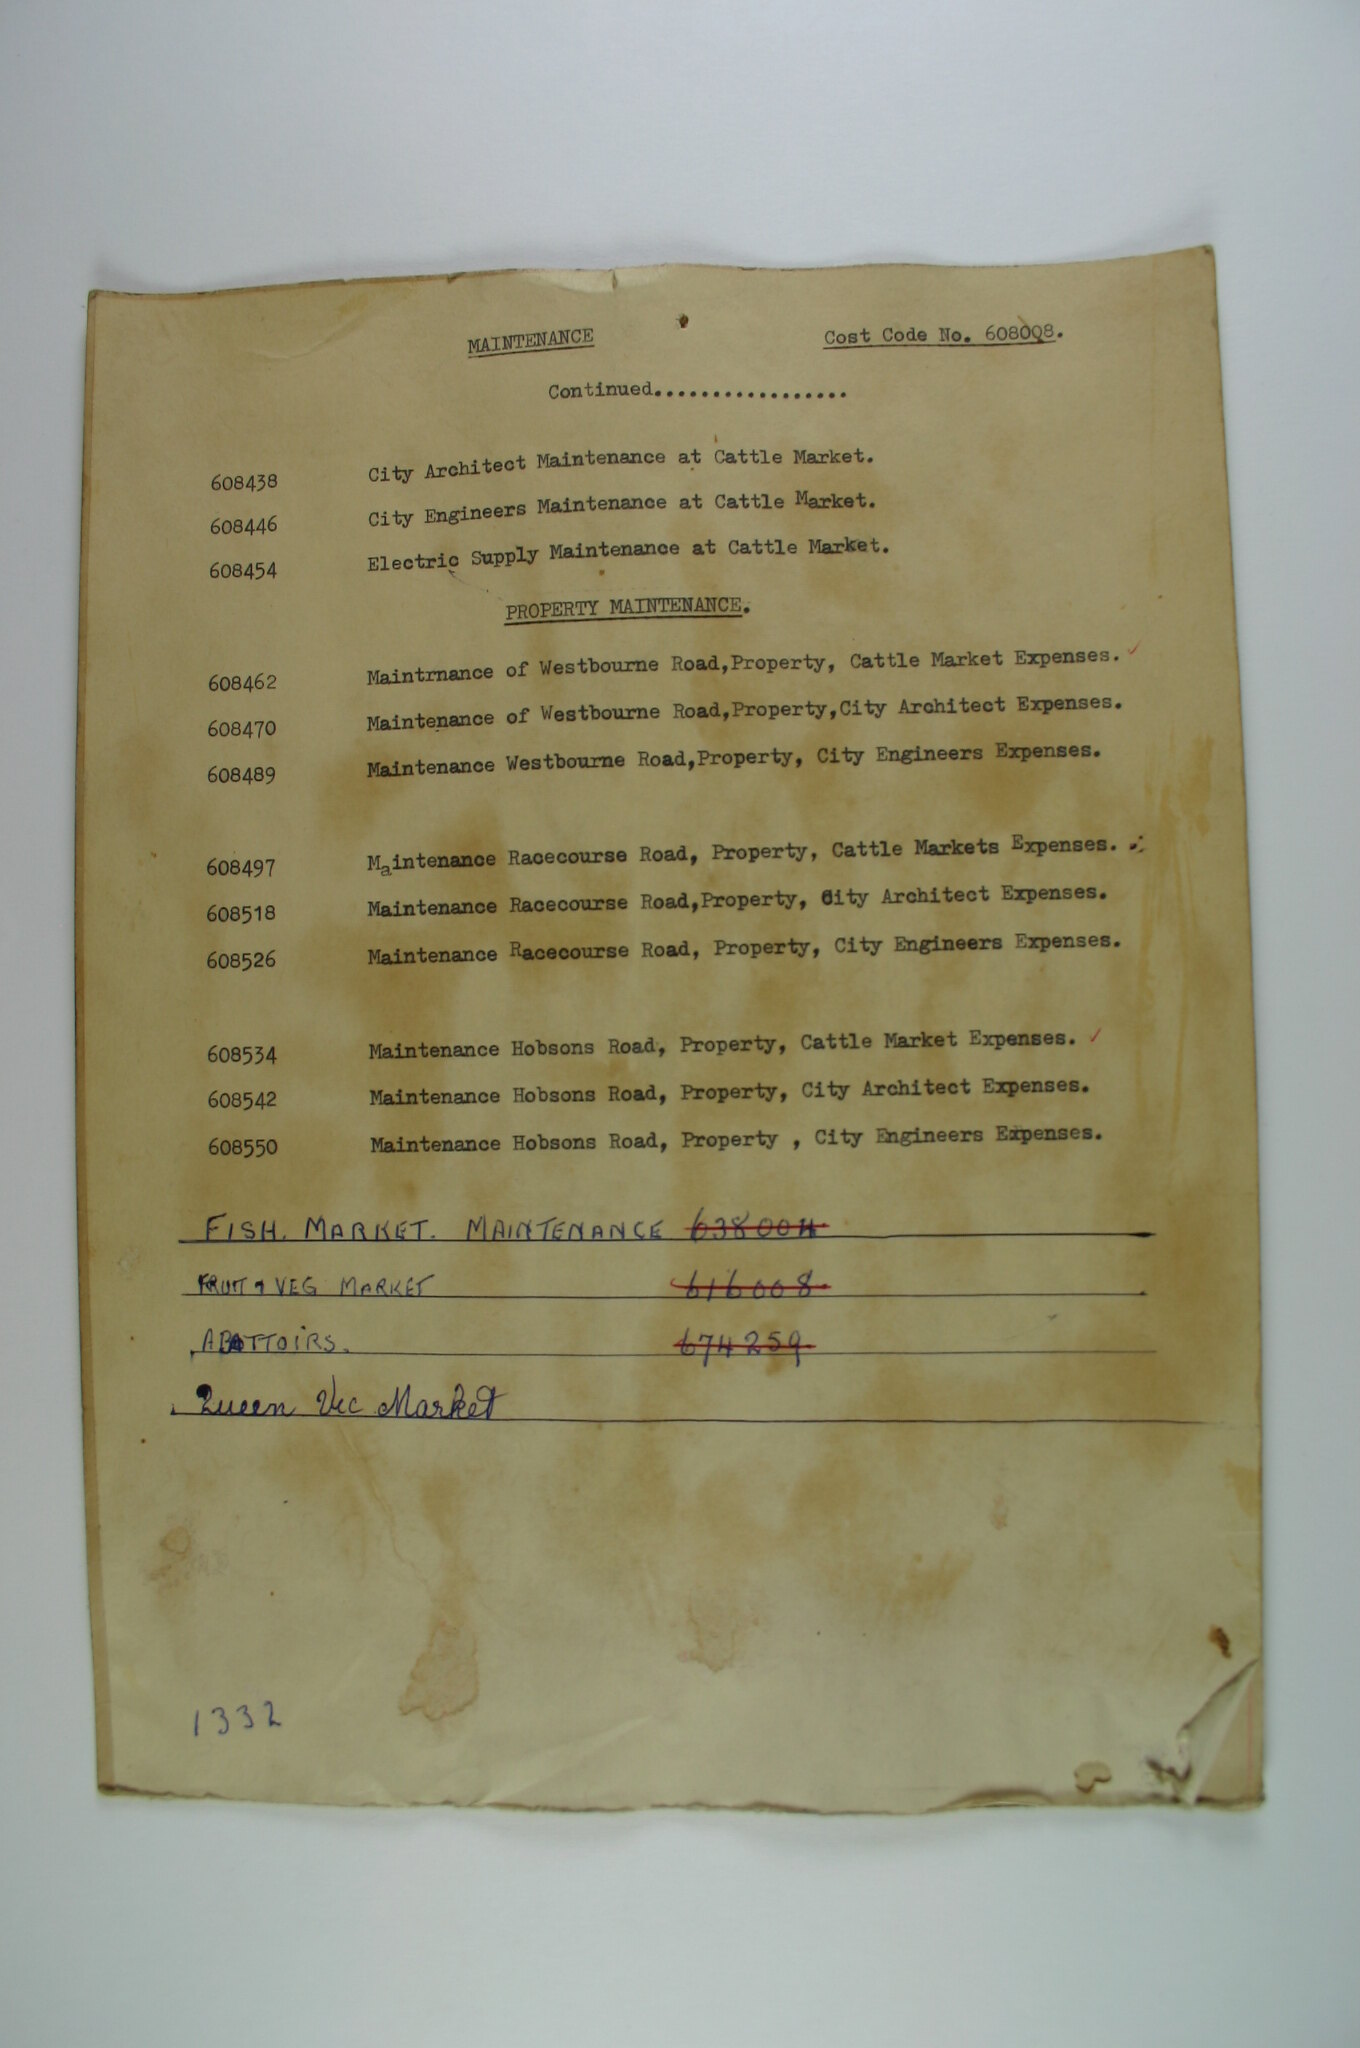 MAINTENANCE Cost Code No. 608008.
Continued.................
608438 City Architect Maintenance at Cattle Market.
608446 City Engineers Maintenance at Cattle Market.
608454 Electric Supply Maintenance at Cattle Market.
PROPERTY MAINTENANCE.
608462 Maintrnance of Westbourne Road,Property, Cattle Market Expenses. ✓
608470 Maintenance of Westbourne Road,Property,City Architect Expenses.
608489 Maintenance Westbourne Road,Property, City Engineers Expenses.
608497 Maintenance Racecourse Road, Property, Cattle Markets Expenses.
608518 Maintenance Racecourse Road,Property, City Architect Expenses.
608526 Maintenance Racecourse Road, Property, City Engineers Expenses.
608534 Maintenance Hobsons Road, Property, Cattle Market Expenses. ✓
608542 Maintenance Hobsons Road, Property, City Architect Expenses.
608550 Maintenance Hobsons Road, Property , City Engineers Expenses.
FISH. MARKET. MAINTENANCE 638004
FRUIT & VEG MARKET 616008
ABATTOIRS. 674259
Queen Vic Market
1332